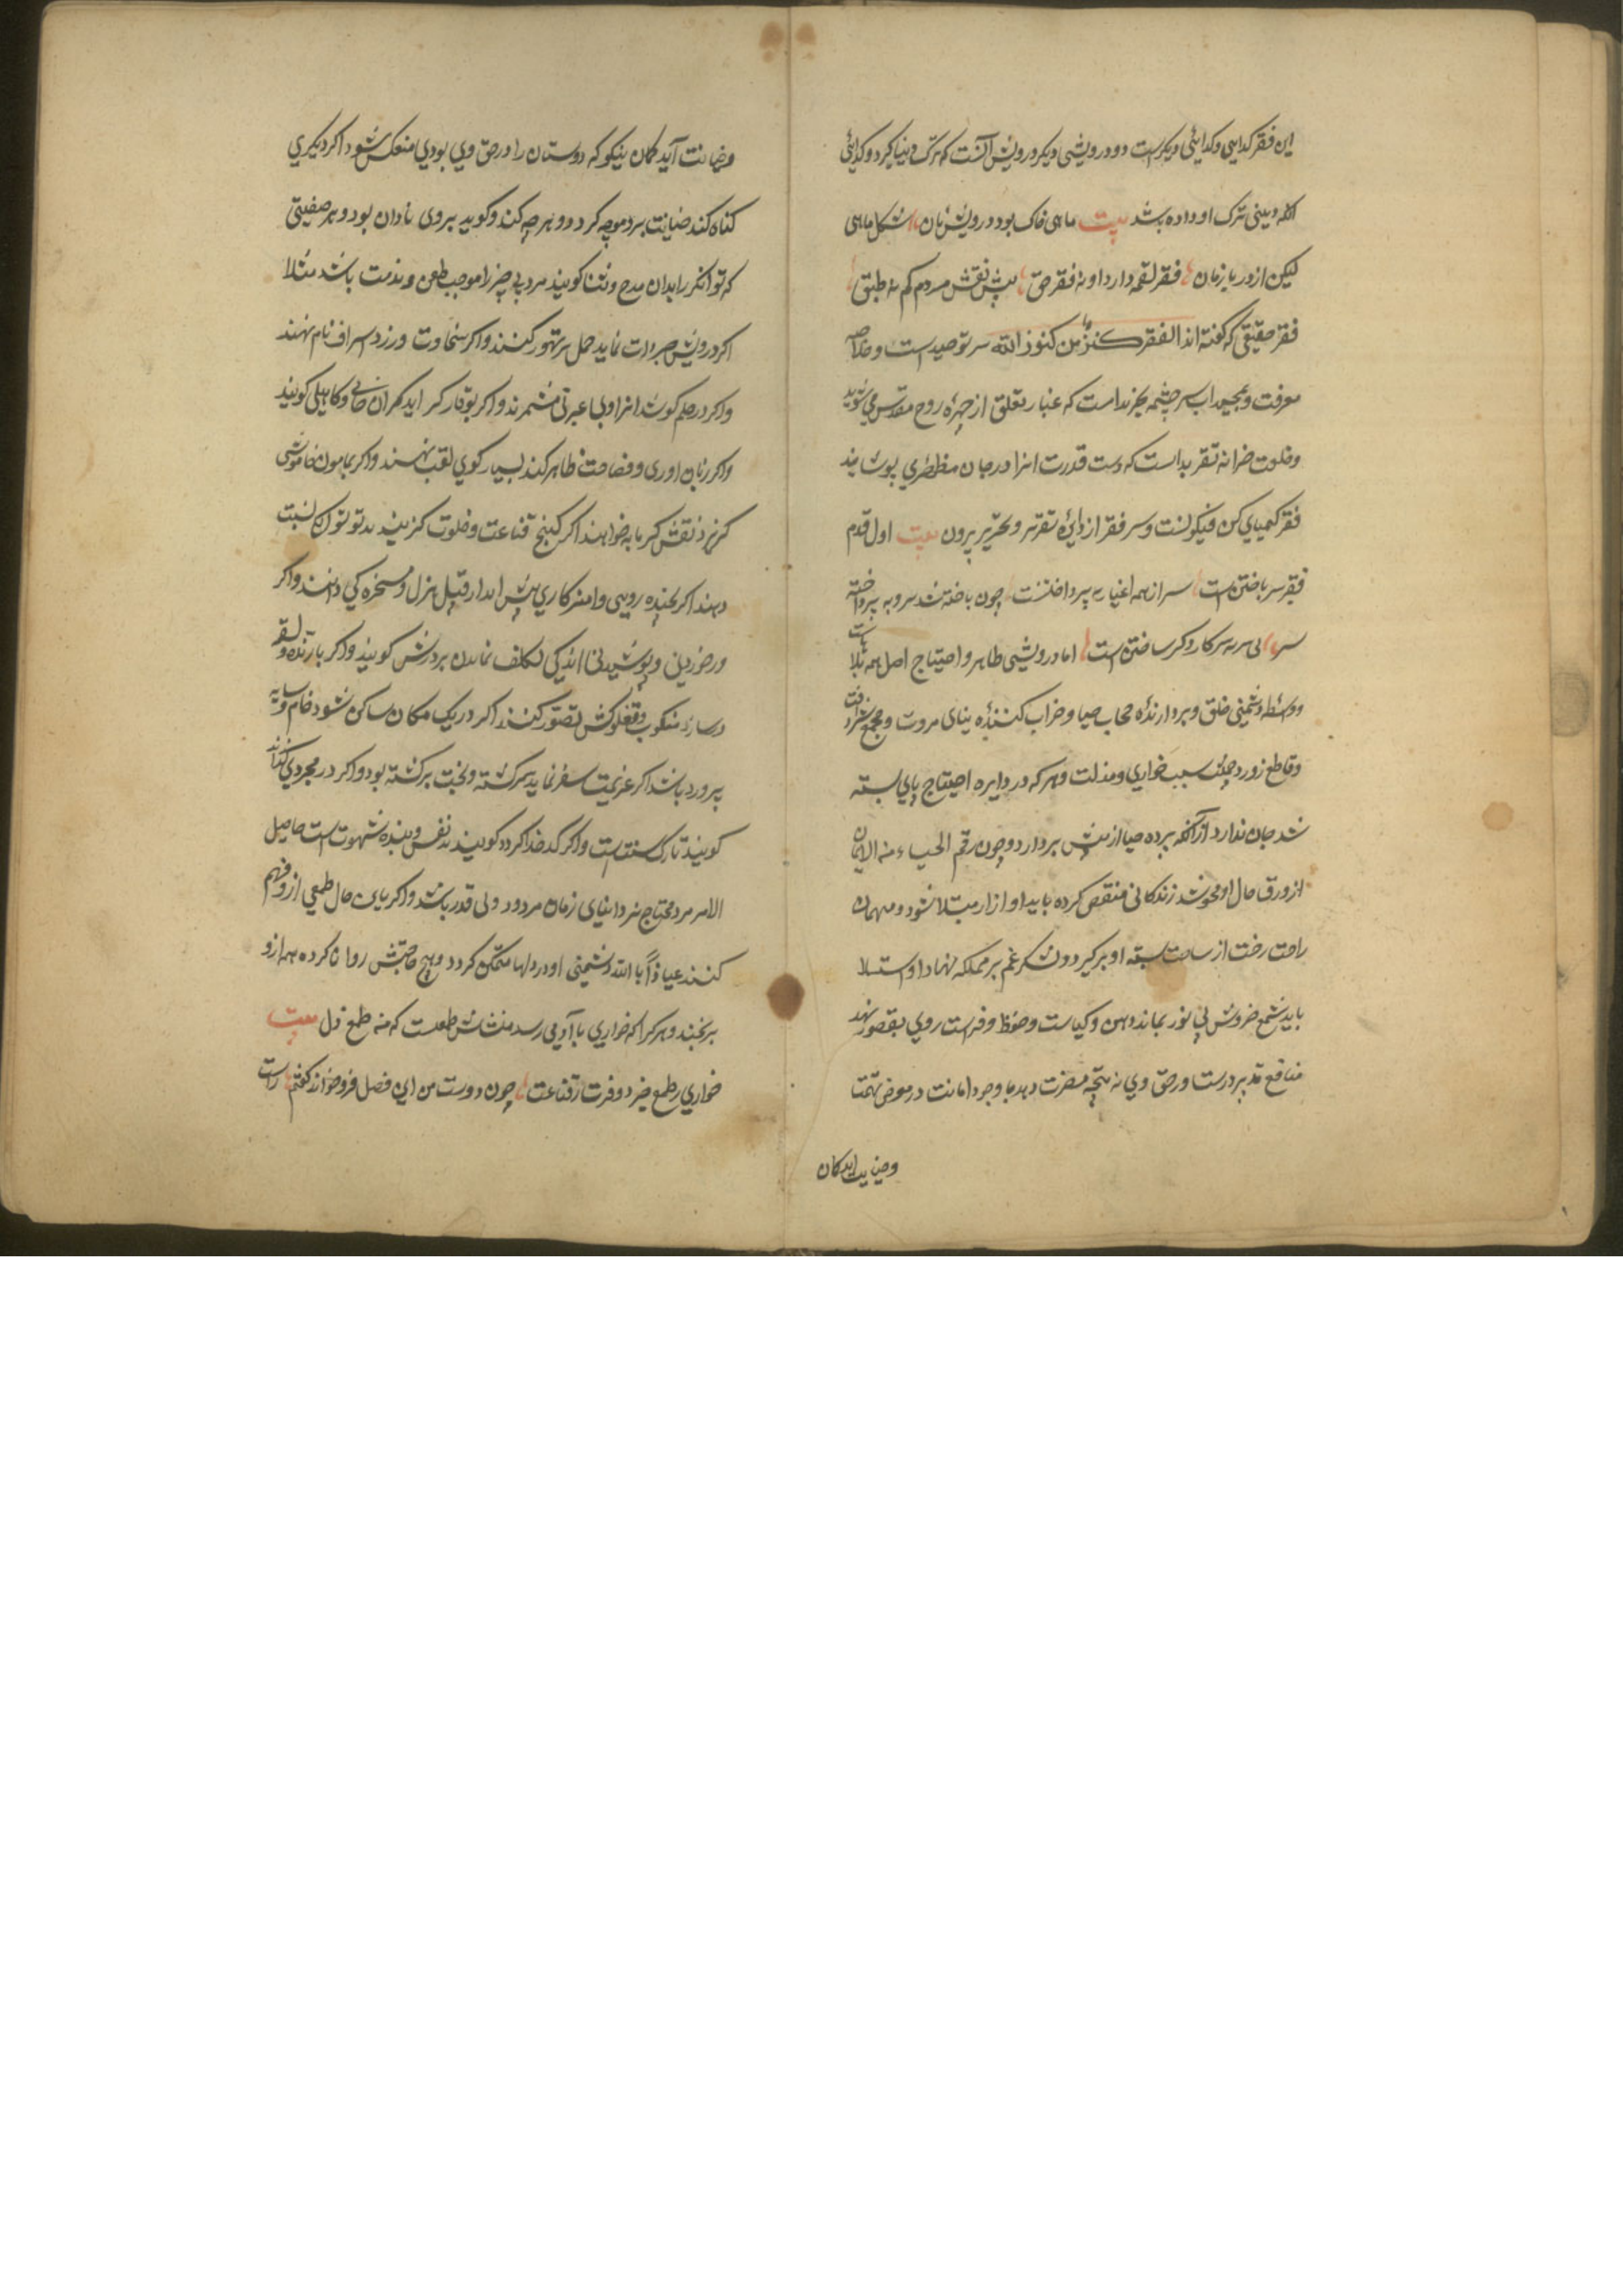 این فقر کدایی وکدایئی دیکرست و درویشی دیکر درویش آنست که ترک دنیا کیرد و کدائی
انکه دنیی ترک او داده باشد بیت ماهی خاک بود درویش نان شکل ماهی
لیکن از دریا رمان فقر لقمه دارد او نه فقر حق پیش نقش مرده کم نه طبق
فقر حقیقی که کفته اند الفقر کنز من کنوز الله سر توحید است و خلاصه
معرفت و بحیه اب سرچشمه تجرید است که غبار تعلق از چهره روح مقدس می شوید
وخلعت خزانه تفرید است که دست قدرت انرا در جان مظطری پوشانید
فقر کیمیای کن فیکونست وسر فقر از دایره تقریر وتحریر بیرون بیت اول قدم
فقر سر باختن است سر از همه اغیار به پرداختنست چون باخته شد سر وبه پرداخته
سر بی سر نه سر کار دکر ساختن است اما درویشی ظاهر واحتیاج اصل همه بلاهاست
و وسطه دشمنی خلق وبردارنده حجاب حیا وخراب کننده بنای مروت ومجمع شر وآفت
وقاطع زور وحمیت وسبب خواری ومذلت وهر که در دایره احتیاج پای بسته
شد جان ندارد از آنکه پرده حیا از پیش بردارد وچون رقم الحیاء من الایمان
از ورق حال او محو شد زندکانی منغص کردد بایداو ازار مبتلا شود ومهمان
راحت رخت از ساحت سینه او بر کیرد ولشکر غم بر مملکه نهاد او استیلا
یابد شمع خردش بی نور بماند وذهن وکیاست وحفظ وفراست روی بقصور نهد
منافع تدبیر درست در حق وی نتیجه مضرت دهد با وجود امانت در معرض تهمت
وخیانت اید کمان
وخیانت آید کمان نیکو که دوستان را در حق وی بودی منعکس شود اکر دیکری
کناه کند خیانت برو موجه کردد وهر چه کند وکوید بر وی تاوان بود وهر صفتی
که توانکر را بدان مدح وثنا کویند مرد بی چیز را موجب طعن ومذمت باشد مثلا
اکر درویش جروات نماید حمل بر تهور کنند واکر سخاوت ورزد اسراف نام نهند
واکر در حلم کوشد انرا وبی عبرتی شمرند واکر بوقار کراید کران جانی وکاهیلی کویند
واکر زبان اوری وفصاحت ظاهر کند بسیار کوی لقب نهند واکر بمامون خاموشی
کریزد نقش کرمابه خوانند اکر کنج قناعت وخلوت کزیند بد تو توان نسبت
دهند اکر بخنده رویی وامیزکاری پیش اید از قبیل هزل ومسخره کی دانند واکر
در خوردنی وپوشیدنی اندکی تکلف نماید تن پرورش کویند واکر با ژنده ولقمه
در سازد منکوب ومفلوکش تصور کنند اکر در یک مکان ساکن شود خام وسایه
پرورد باشد اکر عزیمت سفر نماید سرکشته وبخت برکشته بود واکر در مجردی کذراند
کویند تارک سنت است واکر کدخدا کردد کویند بنده نفس وبنده شهوت است حاصل
الامر مرد محتاج نزد ابنای زمان مردود وبی قدر باشد واکر باین حال طمعی ازو فهم
کنند عیاذا بالله دشمنی او در دلها متمکن کردد وهیچ حاجتش روا نا کرده همه ازو
برنجند وهر کرا که خواری با آدمی رسد منشاش طمعست که من طمع ذل بیت
خواری ز طمع خیزد وعزت ز قناعت چون دوست من این فصل فرو خواند کفتم راست